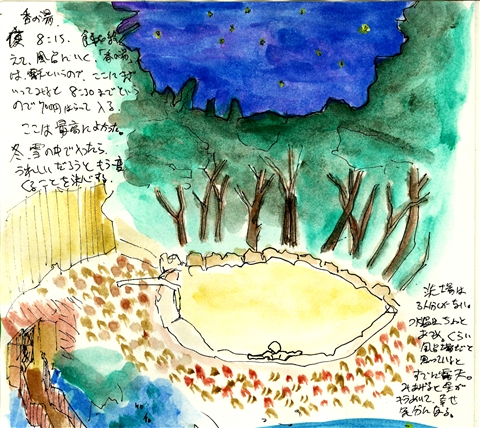 香の湯。
夜 8:15. 食事を終
えて、風呂にいく「香の湯」
は、
というので、ここに
いってみると 8:30 までという
ので 700円はらって入る。
ここは最高によかった。
冬、雪の中で入ったら、
うれしいだろうと、もう一度
くることを決心する。
洗い場は
3人分しかない。
ちょっと
くらい
風呂場だと
思っていると
すごい露天。
みあげると星が
幸せ
気分になる。